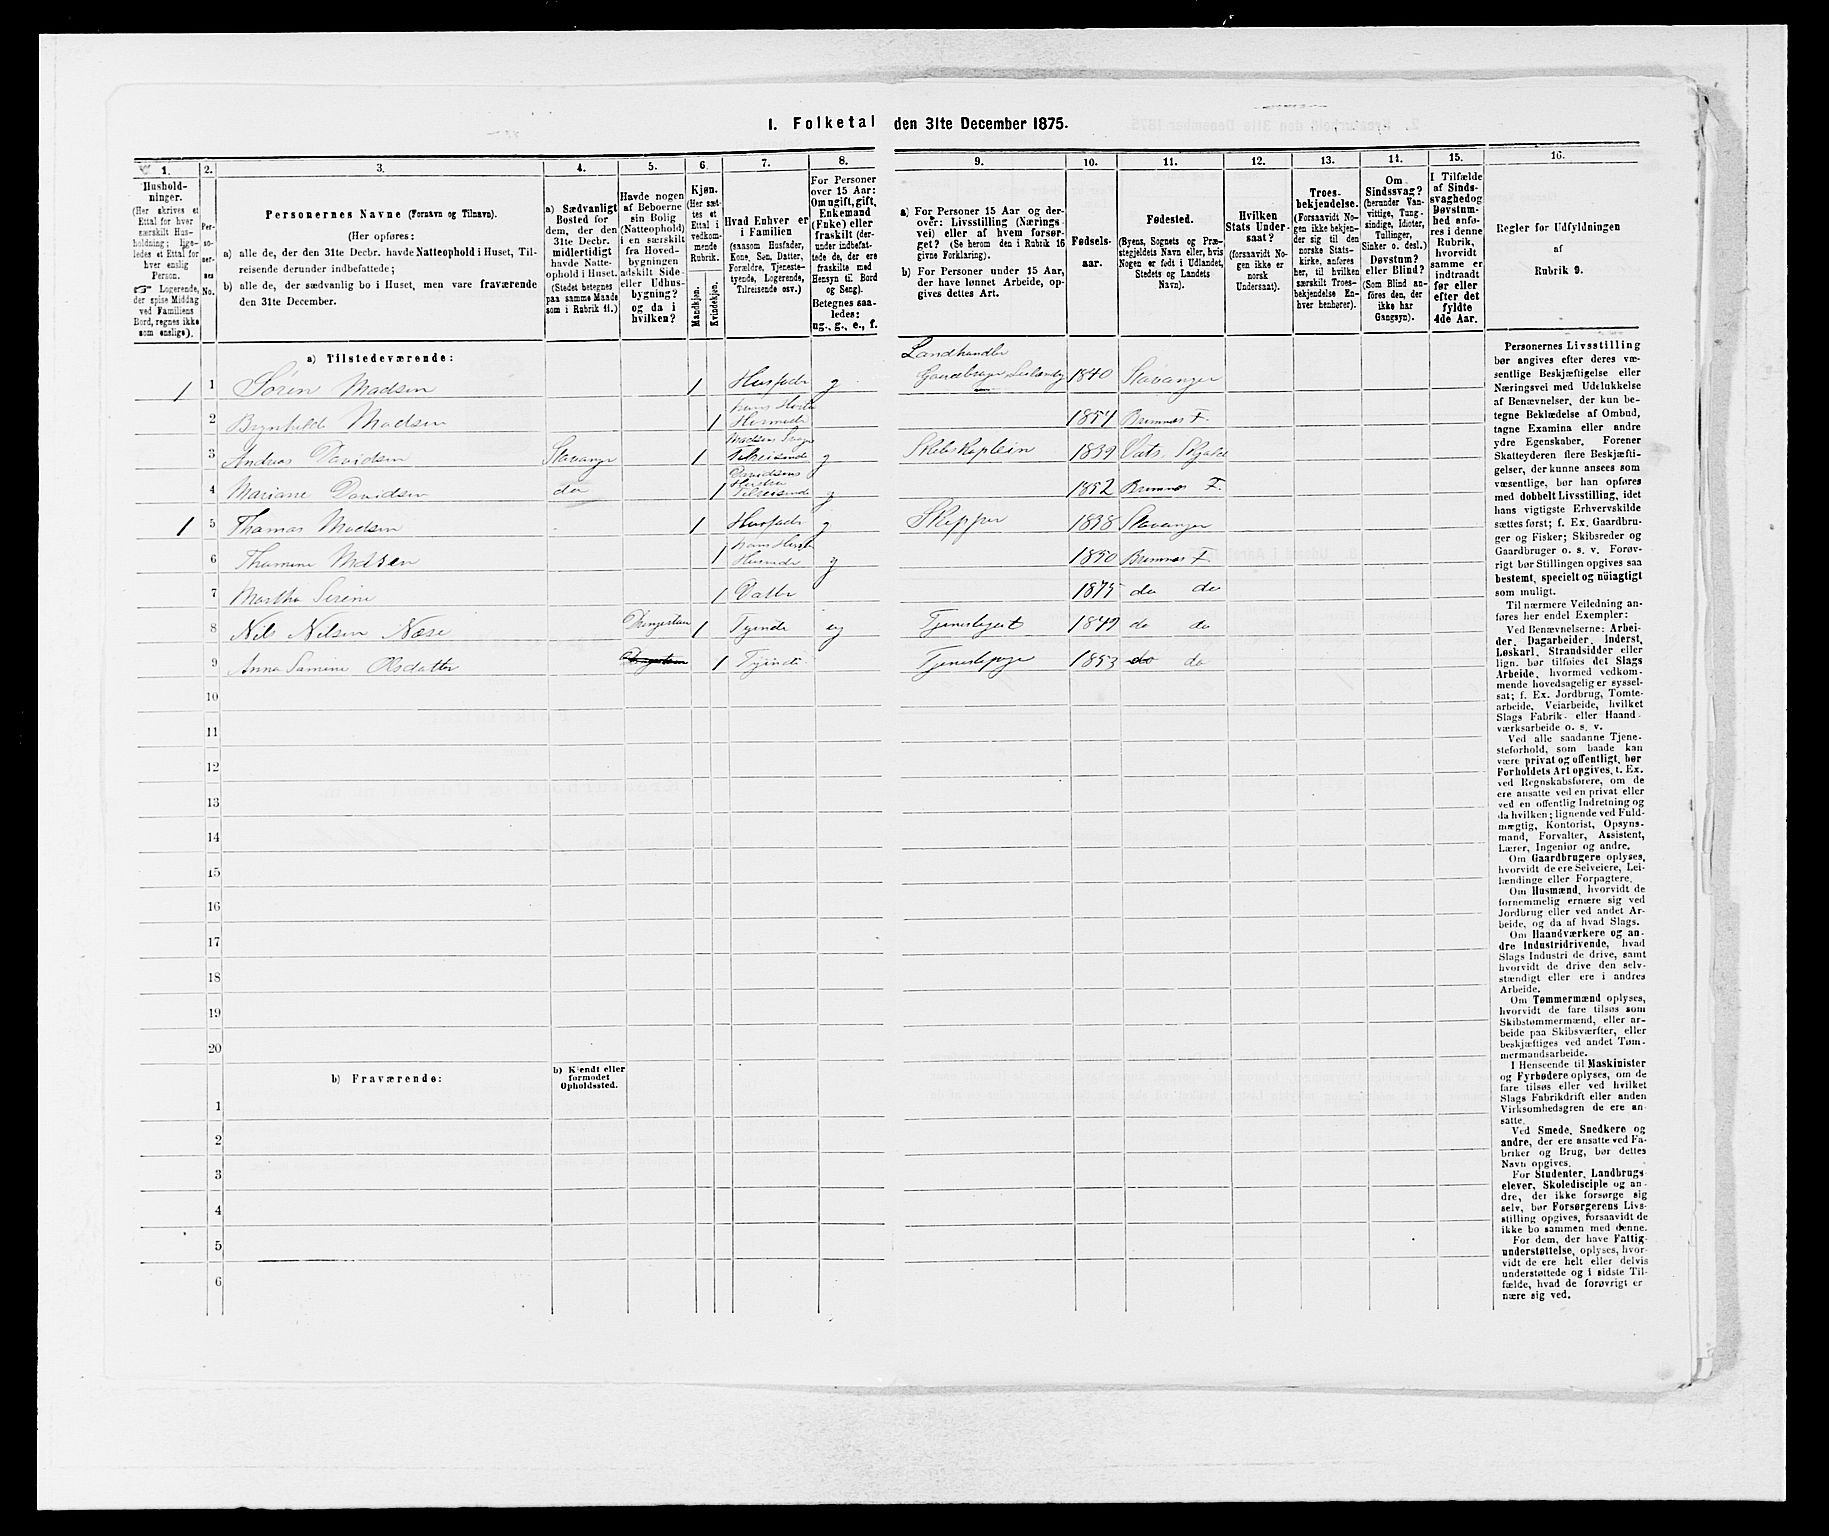 I. Folketal den 31te December 1875.
1.
2.
3.
4.
5.
6.
7.
8.
9.
10.
11.
12.
13.
14.
15.
16.
Hushold-
ninger.
(Her skrives et
Ettal for hver
særskilt Hus-
holdning; lige-
ledes et Ettal for
hver enslig
Person.
☞ Logerende,
der spise Middag
ved Familiens
Bord, regnes ikke
som enslige).
Per-
so-
ner-
nes
No.
Personernes Navne (Fornavn og Tilnavn).
(Her opføres:
a) alle de, der den 31te Decbr. havde Natteophold i Huset, Til-
reisende derunder indbefattede;
b) alle de, der sædvanlig bo i Huset, men vare fraværende
den 31te December.
a) Sædvanligt
Bosted for
dem, der den
31te Decbr.
midlertidigt
havde Natte-
ophold i Huset.
(Stedet betegnes
paa samme Maade
som i Rubrik 11.)
Havde nogen
af Beboerne
sin Bolig
(Natteophold)
i en særskilt
fra Hoved-
bygningen
adskilt Side-
eller Udhus-
bygning?
og da i
hvilken?
Kjøn.
(Her sæt-
tes et
Ettal i
vedkom-
mende
Rubrik.
Mandkjøn.
Kvindekjøn.
Hvad Enhver er
i Familien
(saasom Husfader,
Kone, Søn, Datter,
Forældre, Tjeneste-
tyende, Logerende,
Tilreisende osv.)
For Personer
over 15 Aar:
Om ugift, gift,
Enkemand
(Enke) eller
fraskilt (der-
under indbefat-
tede de, der ere
fraskilte med
Hensyn til Bord
og Seng).
Betegnes saa-
ledes:
ug., g., e., f.
a) For Personer 15 Aar og der-
over: Livsstilling (Nærings-
vei) eller af hvem forsør-
get? (Se herom den i Rubrik 16
givne Forklaring).
b) For Personer under 15 Aar,
der have lønnet Arbeide, op-
gives dettes Art.
Fødsels-
aar.
Fødested.
(Byens, Sognets og Præ-
stegjeldets Navn eller, hvis
Nogen er født i Udlandet,
Stedets og Landets
Navn).
Hvilken
Stats Under-
saat?
(forsaavidt No-
gen ikke er
norsk
Undersaat).
Troes-
bekjendelse.
(Forsaavidt No-
gen ikke bekjen-
der sig til den
norske Stats-
kirke, anføres
her, til hvilken
særskilt Troes-
bekjendelse En-
hver henhører).
Om
Sindssvag?
(herunder Van-
vittige, Tung-
sindige, Idioter,
Tullinger,
Sinker o. desl.)
Døvstum?
eller Blind?
(Som Blind an-
føres den, der
ikke har
Gangsyn).
I Tilfælde
af Sinds-
svaghed og
Døvstum-
hed anfø-
res i denne
Rubrik,
hvorvidt
samme er
indtraadt
før eller
efter det
fyldte
4de Aar.
Regler for Udfyldningen
af
Rubrik 9.
a) Tilstedeværende:
Landhandler
1 1 Søren Madsen 1 Husfader g Gaardbruger 1840 Stavanger
hans Hustru
2 Brynhilde Madsen 1 Husmoder 1854 Bremnes F.
3 Andreas Davidsen Stavanger 1 Tilreisende g Skibskaptein 1839 Vats, Skjold
Davidsens
Hustru
4 Mariane Davidsen do 1 Tilreisende g 1852 Bremnes F.
1 5 Thomas Madsen 1 Husfader g Skipper 1838 Stavanger
hans Hustru
6 Thomine Madsen 1 Husmoder g 1850 Bremnes F.
7 Martha Serine 1 Datter 1875 do do
8 Nils Nilsen Næse 1 Tyende ug Tjenestegut 1849 do do
9 Anna Samine Olsdatter 1 Tyende Tjenestepige 1853 do do
10
11
12
13
14
15
16
17
18
19
20
b) Fraværende:
b) Kjendt eller
formodet
Opholdssted.
1
2
3
4
5
6
Personernes Livsstilling
bør angives efter deres væ-
sentlige Beskjæftigelse eller
Næringsvei med Udelukkelse
af Benævnelser, der kun be-
tegne Beklædelse af Ombud,
tagne Examina eller andre
ydre Egenskaber. Forener
Skatteyderen flere Beskjæfti-
gelser, der kunne ansees som
væsentlige, bør han opføres
med dobbelt Livsstilling, idet
hans vigtigste Erhvervskilde
sættes først; f. Ex. Gaardbru-
ger og Fisker; Skibsreder og
Gaardbruger o. s. v. Forøv-
rigt bør Stillingen opgives saa
bestemt, specielt og nöiagtigt
som muligt.
Til nærmere Veiledning an-
føres her endel Exempler:
Ved Benævnelserne: Arbei-
der, Dagarbeider, Inderst,
Løskarl, Strandsidder eller
lign. bør tilføies det Slags
Arbeide, hvormed vedkom-
mende hovedsagelig er syssel-
sat; f. Ex. Jordbrug, Tomte-
arbeide, Veiarbeide, hvilket
Slags Fabrik- eller Haand-
værksarbeide o. s. v.
Ved alle saadanne Tjene-
steforhold, som baade kan
være privat og offentligt, bør
Forholdets Art opgives, t. Ex.
ved Regnskabsførere, om de
ere ansatte ved en privat eller
ved en offentlig Indretning og
da hvilken; lignende ved Fuld-
mægtig, Kontorist, Opsyns-
mand, Forvalter, Assistent,
Lærer, Ingeniør og andre.
Om Gaardbrugere oplyses,
hvorvidt de ere Selveiere, Lei-
lændinge eller Forpagtere.
Om Husmænd, hvorvidt de
fornemmelig ernære sig ved
Jordbrug eller ved andet Ar-
beide, og da af hvad Slags.
Om Haandværkere og an-
dre Industridrivende, hvad
Slags Industri de drive, samt
hvorvidt de drive den selv-
stændigt eller ere i andres
Arbeide.
Om Tømmermænd oplyses,
hvorvidt de fare tilsøs som
Skibstømmermænd, eller ar-
beide paa Skibsværfter, eller
beskjæftiges ved andet Tøm-
mermandsarbeide.
I Henseende til Maskinister
og Fyrbødere oplyses, om de
fare tilsøs eller ved hvilket
Slags Fabrikdrift eller anden
Virksomhedsgren de ere an-
satte.
Ved Smede, Snedkere og
andre, der ere ansatte ved Fa-
briker og Brug, bør dettes
Navn opgives.
For Studenter, Landbrugs-
elever, Skoledisciple og an-
dre, der ikke forsørge sig
selv, bør Forsørgerens Livs-
stilling opgives, forsaavidt de
ikke bo sammen med denne.
For dem, der have Fattig-
understøttelse, oplyses, hvor-
vidt de ere helt eller delvis
understøttede og i sidste Til-
fælde, hvad de forøvrigt er-
nære sig ved.